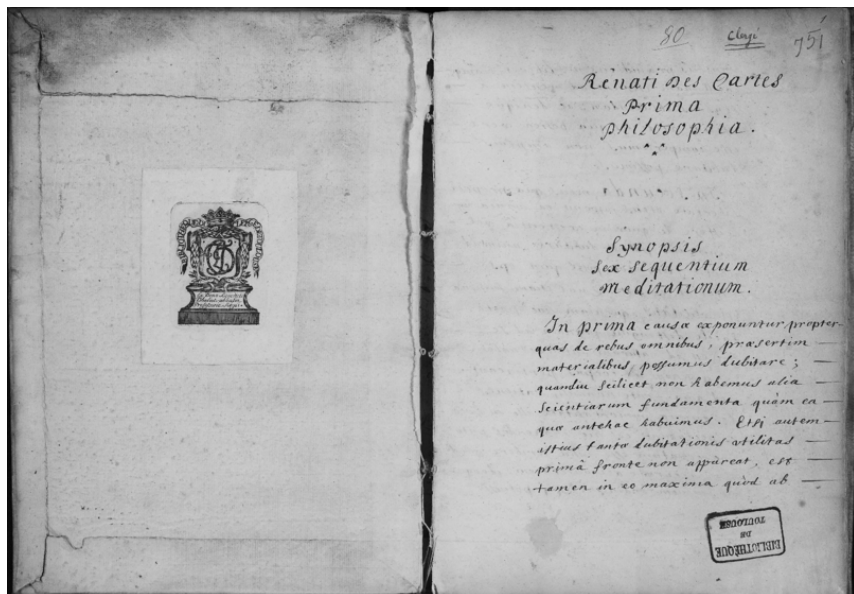 80 Clergé 751
Renati Des Cartes
Prima
philosophia.
Synopsis
sex sequentium
meditationum.
In prima causæ exponuntur propter
quas de rebus omnibus, præsertim
materialibus, possumus dubitare;
quandiu scilicet non habemus alia
scientiarum fundamenta quàm ea
quæ antehac habuimus. Etsi autem
istius tantæ dubitationis utilitas
primâ fronte non appareat, est
tamen in eo maxima quòd ab
BIBLIOTHÈQUE
DE
TOULOUSE